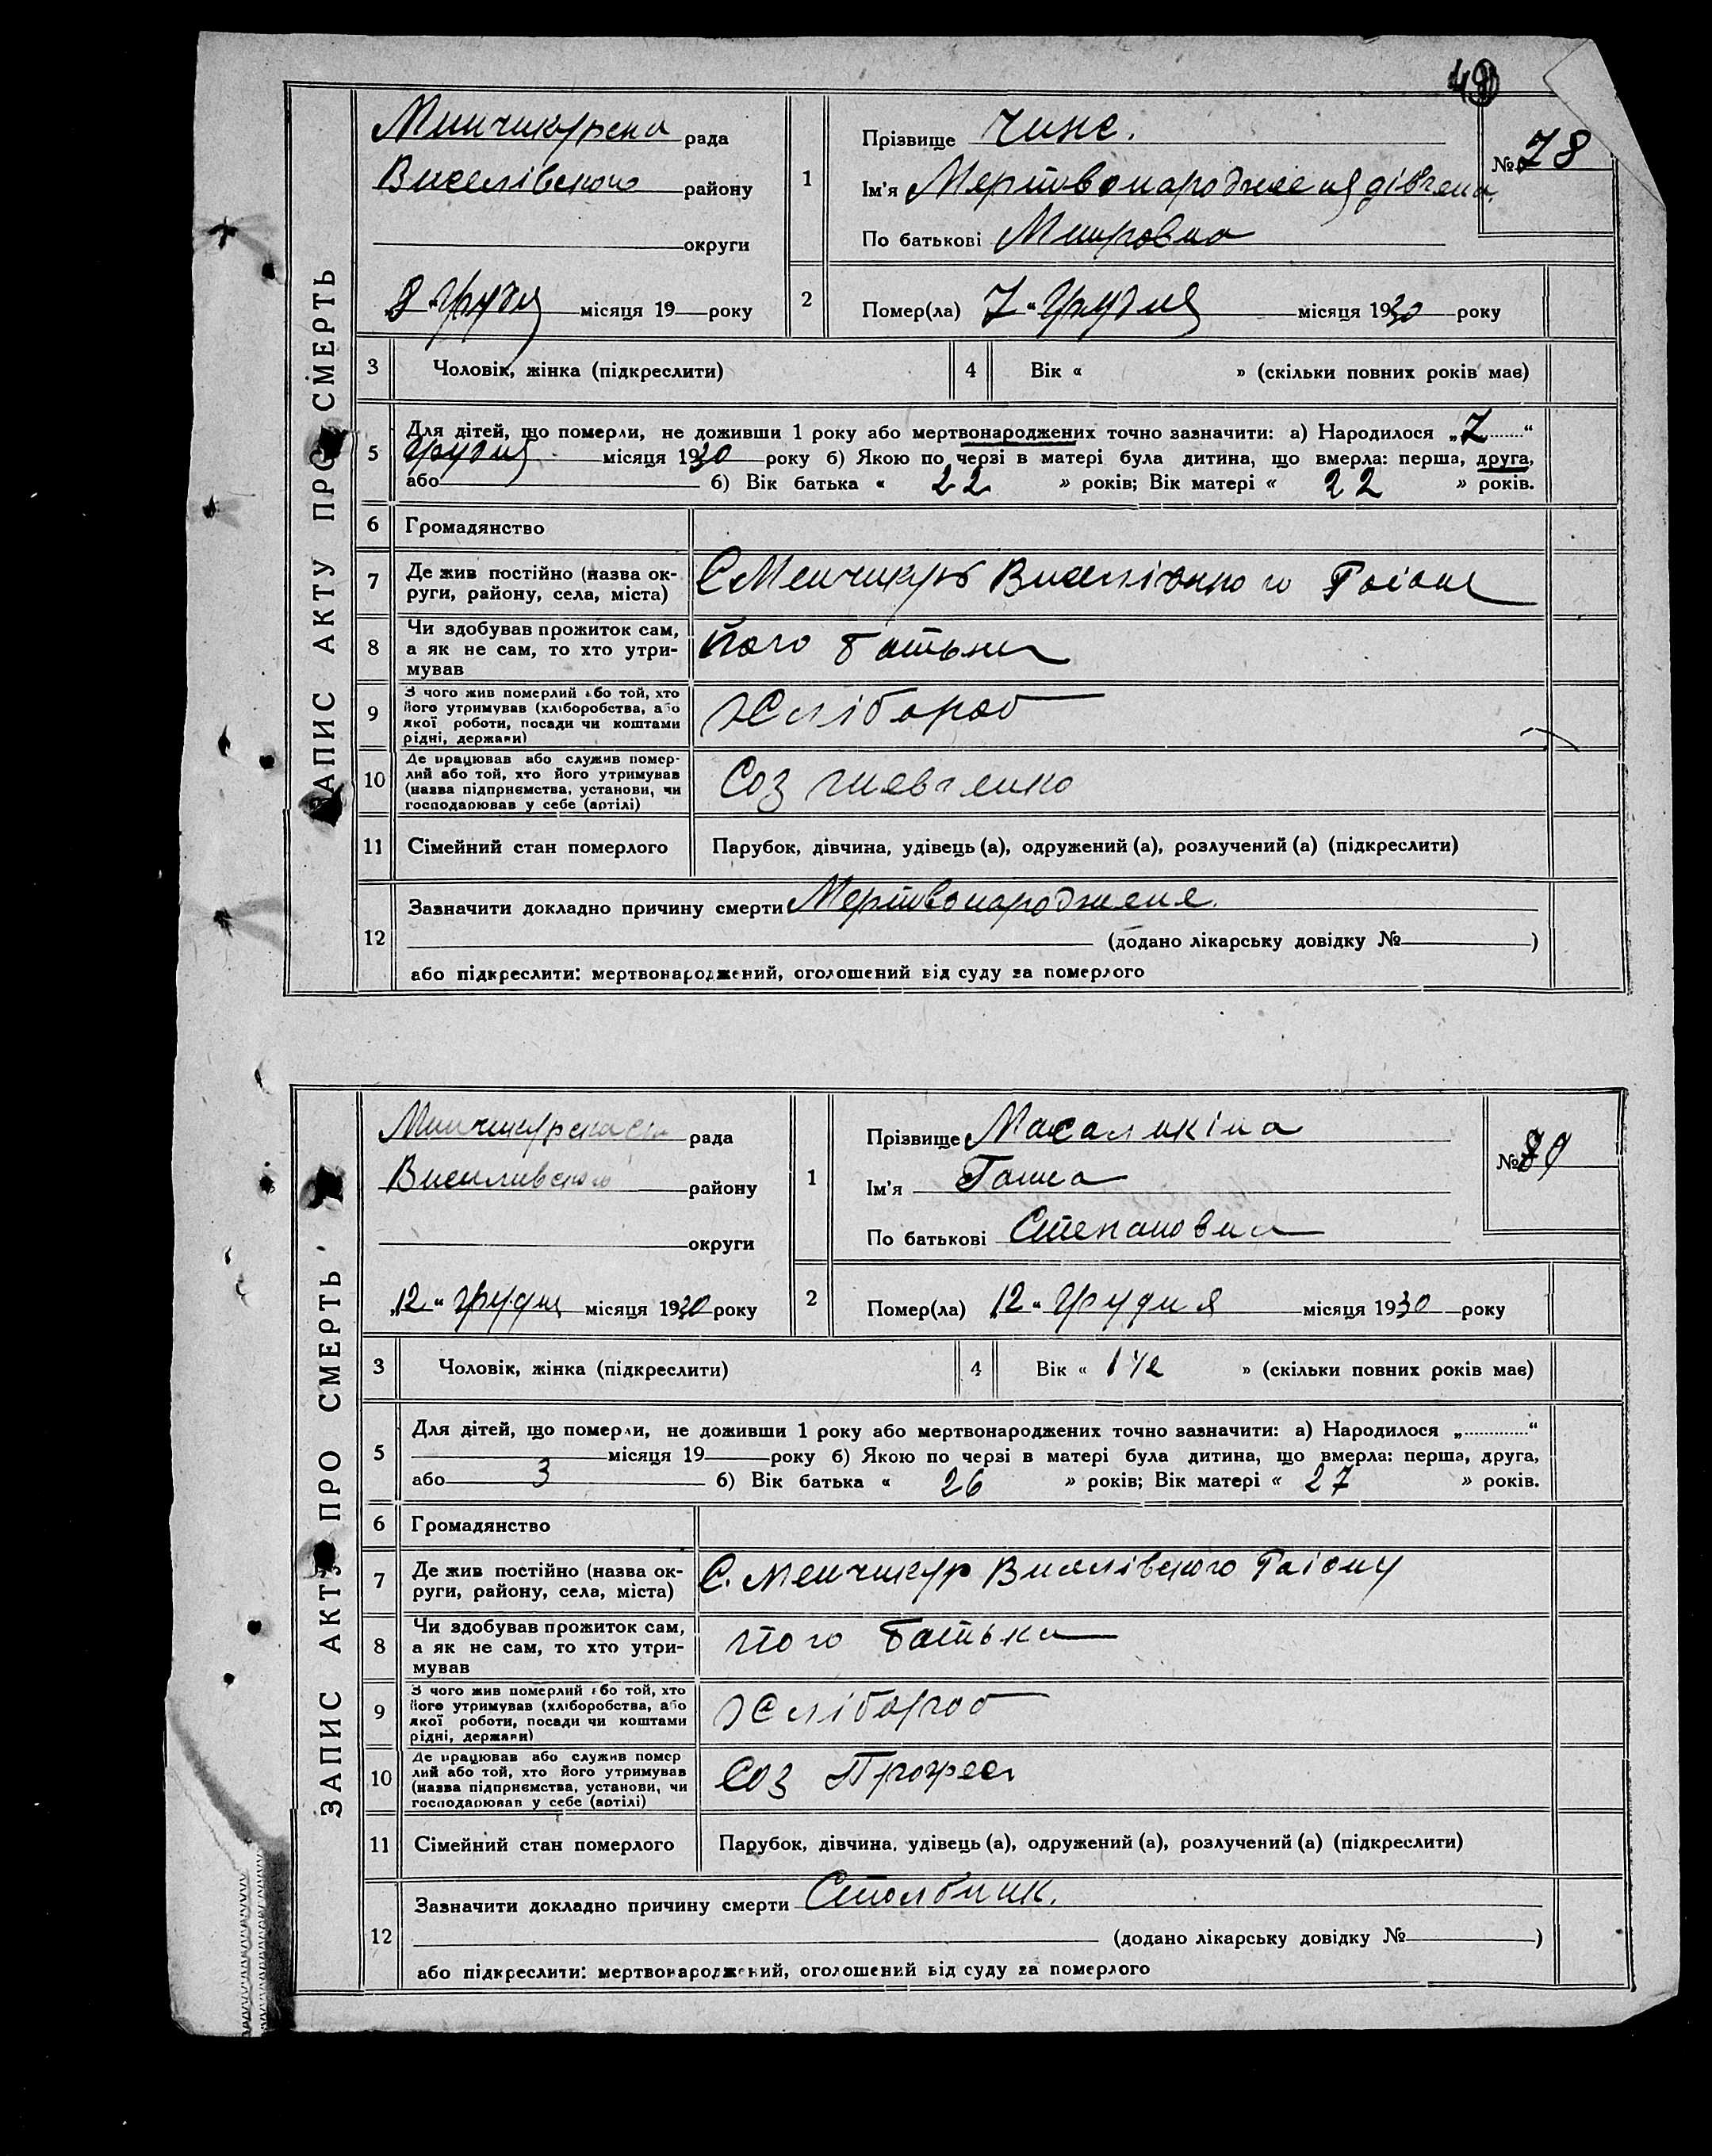 49
ЗАПИС АКТУ ПРО СМЕРТЬ
Минчикурська рада
Веселівського району
округи
1
Прізвище Чинс.
№ 78
Ім'я Мертвонароджееня дівчена.
По батькові
8 грудня місяця 19 року
2
Помер(ла) 7 " Грудня місяця 1930 року
3 Чоловік, жінка (підкреслити)
4 Вік « » (скільки повних років має)
5 Для дітей, що померли, не доживши 1 року або мертвонароджених точно зазначити: а) Народилося „ 7 “
грудня місяця 1930 року б) Якою по черзі в матері була дитина, що вмерла: перша, друга,
або б) Вік батька « 22 » років; Вік матері « 22 » років.
6 Громадянство
7 Де жив постійно (назва ок-
руги, району, села, міста)
С Менчикур Веселівського Раіону
8 Чи здобував прожиток сам,
а як не сам, то хто утри-
мував
його батьки
9 З чого жив померлий або той, хто
його утримував (хліборобства, або
якої роботи, посади чи коштами
рідні, держави)
Хлібороб
10 Де працював або служив помер-
лий або той, хто його утримував
(назва підприємства, установи, чи
господарював у себе (артілі)
Соз Шевченко
11 Сімейний стан померлого
Парубок, дівчина, удівець (а), одружений (а), розлучений (а) (підкреслити)
12 Зазначити докладно причину смерти Мертвонароджене.
(додано лікарську довідку № )
або підкреслити: мертвонароджений, оголошений від суду за померлого
ЗАПИС АКТУ ПРО СМЕРТЬ
Минчикурська рада
Веселивського району
округи
1
Прізвище Масаликіна
№
Ім'я Ганна
По батькові Степановна
„12 " грудня місяця 1930 року
2
Помер(ла) 12 " Грудня місяця 1930 року
3 Чоловік, жінка (підкреслити)
4 Вік « 1 1/2 » (скільки повних років має)
5 Для дітей, що померли, не доживши 1 року або мертвонароджених точно зазначити: а) Народилося „ “
місяця 19 року б) Якою по черзі в матері була дитина, що вмерла: перша, друга,
або 3 б) Вік батька « 26 » років; Вік матері « 27 » років.
6 Громадянство
7 Де жив постійно (назва ок-
руги, району, села, міста)
С. Менчикур Веселівського Раіону
8 Чи здобував прожиток сам,
а як не сам, то хто утри-
мував
його батьки
9 З чого жив померлий або той, хто
його утримував (хліборобства, або
якої роботи, посади чи коштами
рідні, держави)
Хлібороб
10 Де працював або служив помер
лий або той, хто його утримував
(назва підприємства, установи, чи
господарював у себе (артілі)
Соз Прогрес
11 Сімейний стан померлого
Парубок, дівчина, удівець (а), одружений (а), розлучений (а) (підкреслити)
12 Зазначити докладно причину смерти Столбник.
(додано лікарську довідку № )
або підкреслити: мертвонароджений, оголошений від суду за померлого